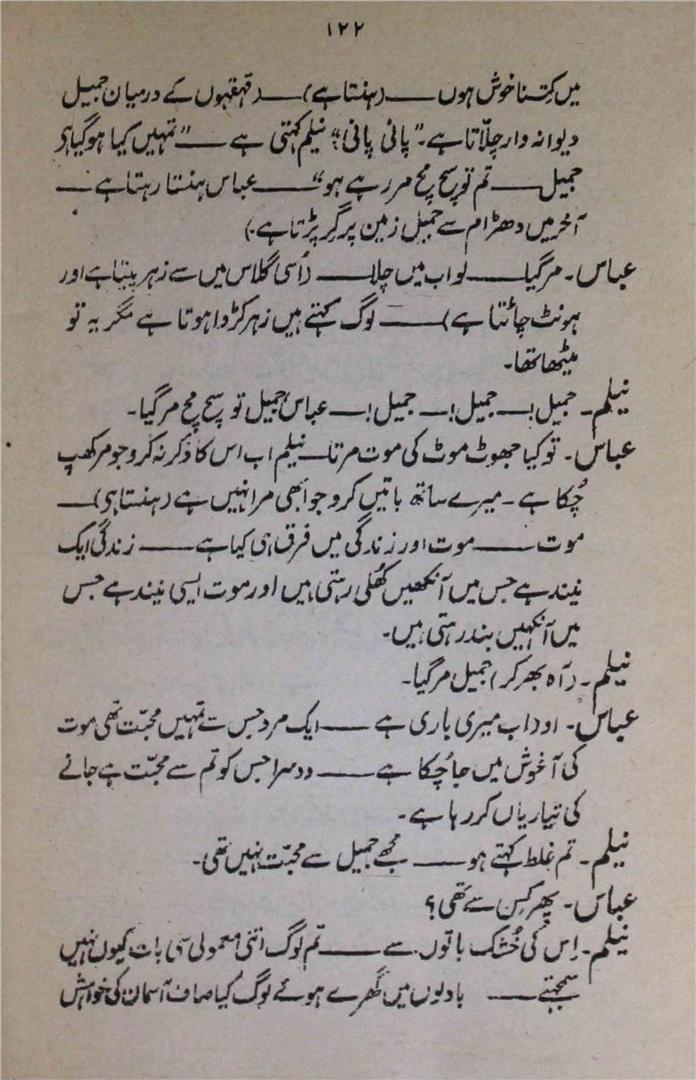 ۱۲۲
میں کتنا خوش ہوں ——— (ہنستا ہے) —— (قہقہوں کے درمیان جمیل
دیوانہ وار چلّاتا ہے۔ "پانی پانی" نیلم کہتی ہے ——— "تمہیں کیا ہو گیا ہی
جمیل ——— تم تو سچ مچ مر رہے ہو" ——— عباس ہنستا رہتا ہے ——
آخر میں دھڑام سے جمیل زمین پر گِر پڑتا ہے۔)
عباس۔ مر گیا ——— لو اب میں چلا ——— (اُسی گلاس میں سے زہر پیتا ہے اور
ہونٹ چاٹتا ہے) ——— لوگ کہتے ہیں زہر کڑوا ہوتا ہے مگر یہ تو
میٹھا تھا۔
نیلم۔ جمیل! — جمیل! — جمیل! — عباس جمیل تو سچ مچ مر گیا۔
عباس۔ تو کیا جھوٹ موٹ کی موت مرتا — نیلم اب اس کا ذکر نہ کرو جو مرکھپ
چُکا ہے۔ میرے ساتھ باتیں کرو جو ابھی مرا نہیں ہے (ہنستا ہی) ——
موت ——— موت اور زندگی میں فرق ہی کیا ہے ——— زندگی ایک
نیند ہے جس میں آنکھیں کُھلی رہتی ہیں اور موت ایسی نیند ہے جس
میں آنکھیں بند رہتی ہیں۔
نیلم۔ (آہ بھر کر) جمیل مر گیا۔
عباس۔ اور اب میری باری ہے ——— ایک مرد جس سے تمہیں محبّت تھی موت
کی آغوش میں جا چُکا ہے ——— دوسرا جس کو تم سے محبّت ہے جانے
کی تیاریاں کر رہا ہے۔
نیلم۔ تم غلط کہتے ہو ——— مجھے جمیل سے محبّت نہیں تھی۔
عباس۔ پھر کِس سے تھی؟
نیلم۔ اِس کی خُشک باتوں سے ——— تم لوگ اتنی معمولی سی بات کیوں نہیں
سمجھتے ——— بادلوں میں گھرے ہوئے لوگ کیا صاف آسمان کی خواہش